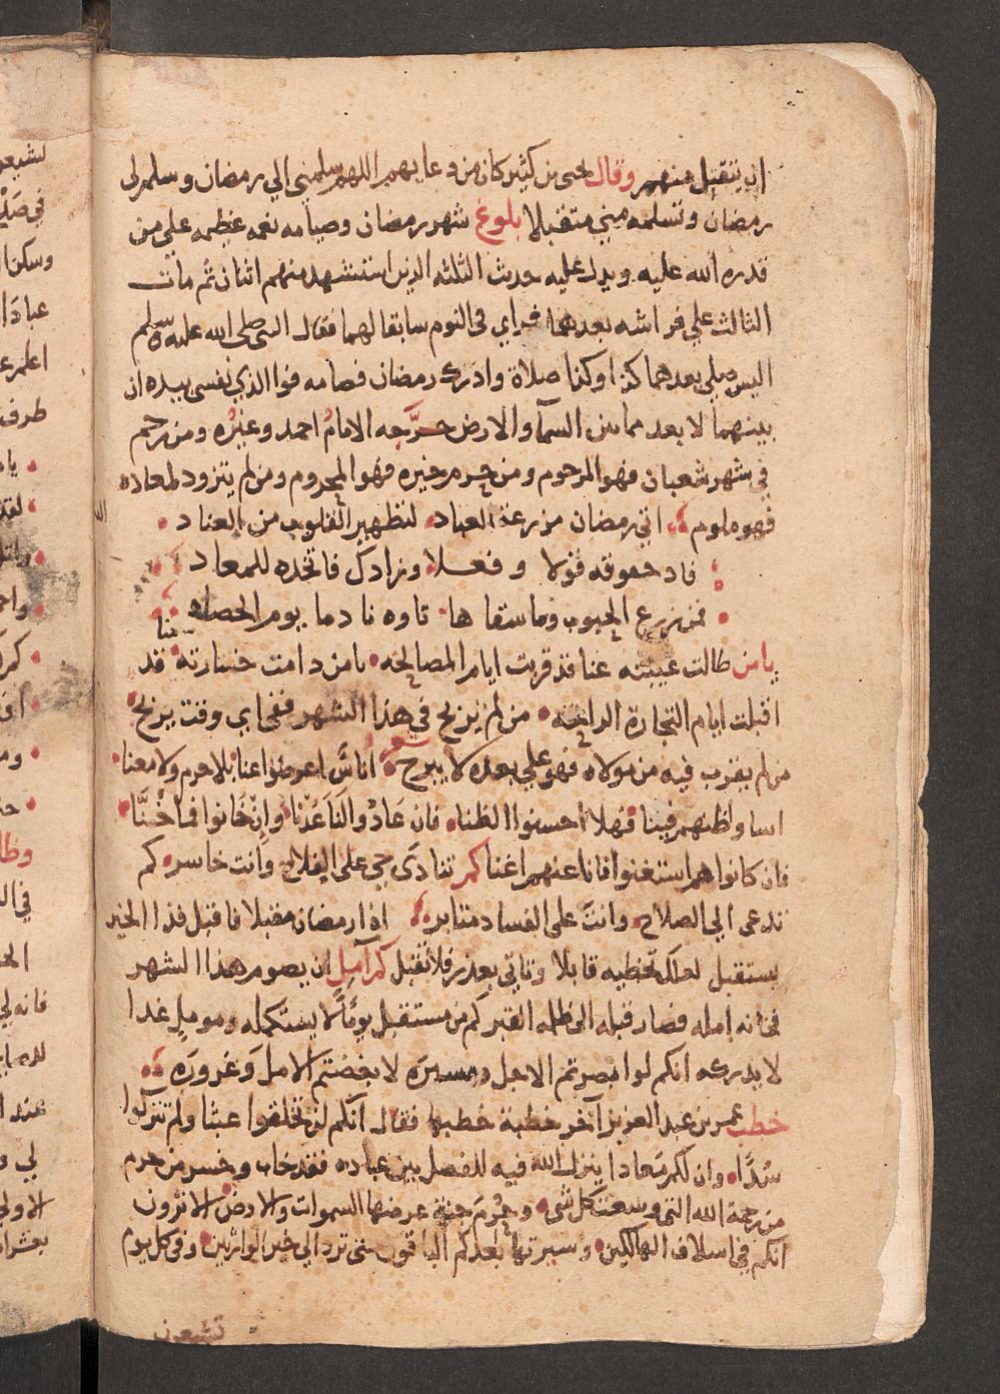 ان يتقبل منهم وقال يحيى بن كثير كان من دعايهم اللهم سلمني الي رمضان وسلم لى
رمضان وتسلمه مني متقبلا بلوغ شهر رمضان وصيامه نعمه عظيمه على من
قدره الله عليه ويدل عليه حديث الثلثه الذين استشهد منهم اثنان ثم مات
الثالث علي فراشه بعدهما فراي فى النوم سابقا لهما فقال النبى صلى الله عليه وسلم
اليس صلي بعدهما كذا وكذا صلاة وادرك رمضان فصامه فوا الذي نفسى بيده ان
بينهما لابعد مما بين السمآ والارض خرَّجه الامام احمد وغيره ومن رحم
فى شهر شعبان فهو المرحوم ومن حرم خيره فهو المحروم ومن لم يتزود لمعاده
فهو ملوم اتي رمضان مزرعة العباد لتطهير القلوب من العناد
فاد حقوقه قولا وفعلا وزادك فاتخذه للمعاد
فمن زرع الحبوب وما سقاها تاوه نادما يوم الحصاد
يا من طالت غيبته عنا قد قربت ايام المصالحه يا من دامت خسارته قد
اقبلت ايام التجارة الرابحه من لم يربح في هذا الشهر ففى اي وقت يربح
من لم يقرب فيه من مولاه فهو على بعده لا يبرح اناسٌ اعرضوا عنا بلا جرم ولا معنا
اساوا ظنهم فينا فهلا احسنوا الظنا فان عَادُوا لنَا عُدْنا وان خَانوا فما خُنَّا
فان كانوا هم استغنوا فانا عنهم اغنا كم تنادَى حي على الفلاح وانت خاسر كم
تدعى الي الصلاح وانت على الفساد مثابر اذا رمضان مقبلا فاقبل فذا الخير
يستقبل لعلك تخطيه قابلا وتاتي بعذر فلا تقبل كم آمل ان يصوم هذا الشهر
فخانه امله فصار قبله الى ظلمه القبر كم من مستقبل يومًا لا يستكمله ومومل غدا
لا يدركه انكم لو ابصرتم الاجل ومسيرَه لابغضتم الامل وَغرورَه
خطب عمر بن عبد العزيز آخر خطبة خطبها فقال انكم لم تخلقوا عبثا ولم تتركوا
سُدًا وان لكم مَعادا ينزل الله فيه للفصل بين عباده فقد خاب وخسر من حرم
من رحمة الله التى وسعت كل شى وحُرمَ جنة عرضها السموات والارض الا ترون
انكم في اسلاف الهالكين وسيرثها بعدكم الباقون حتى ترد الي خير الوارثين وفى كل يوم
تشيعون